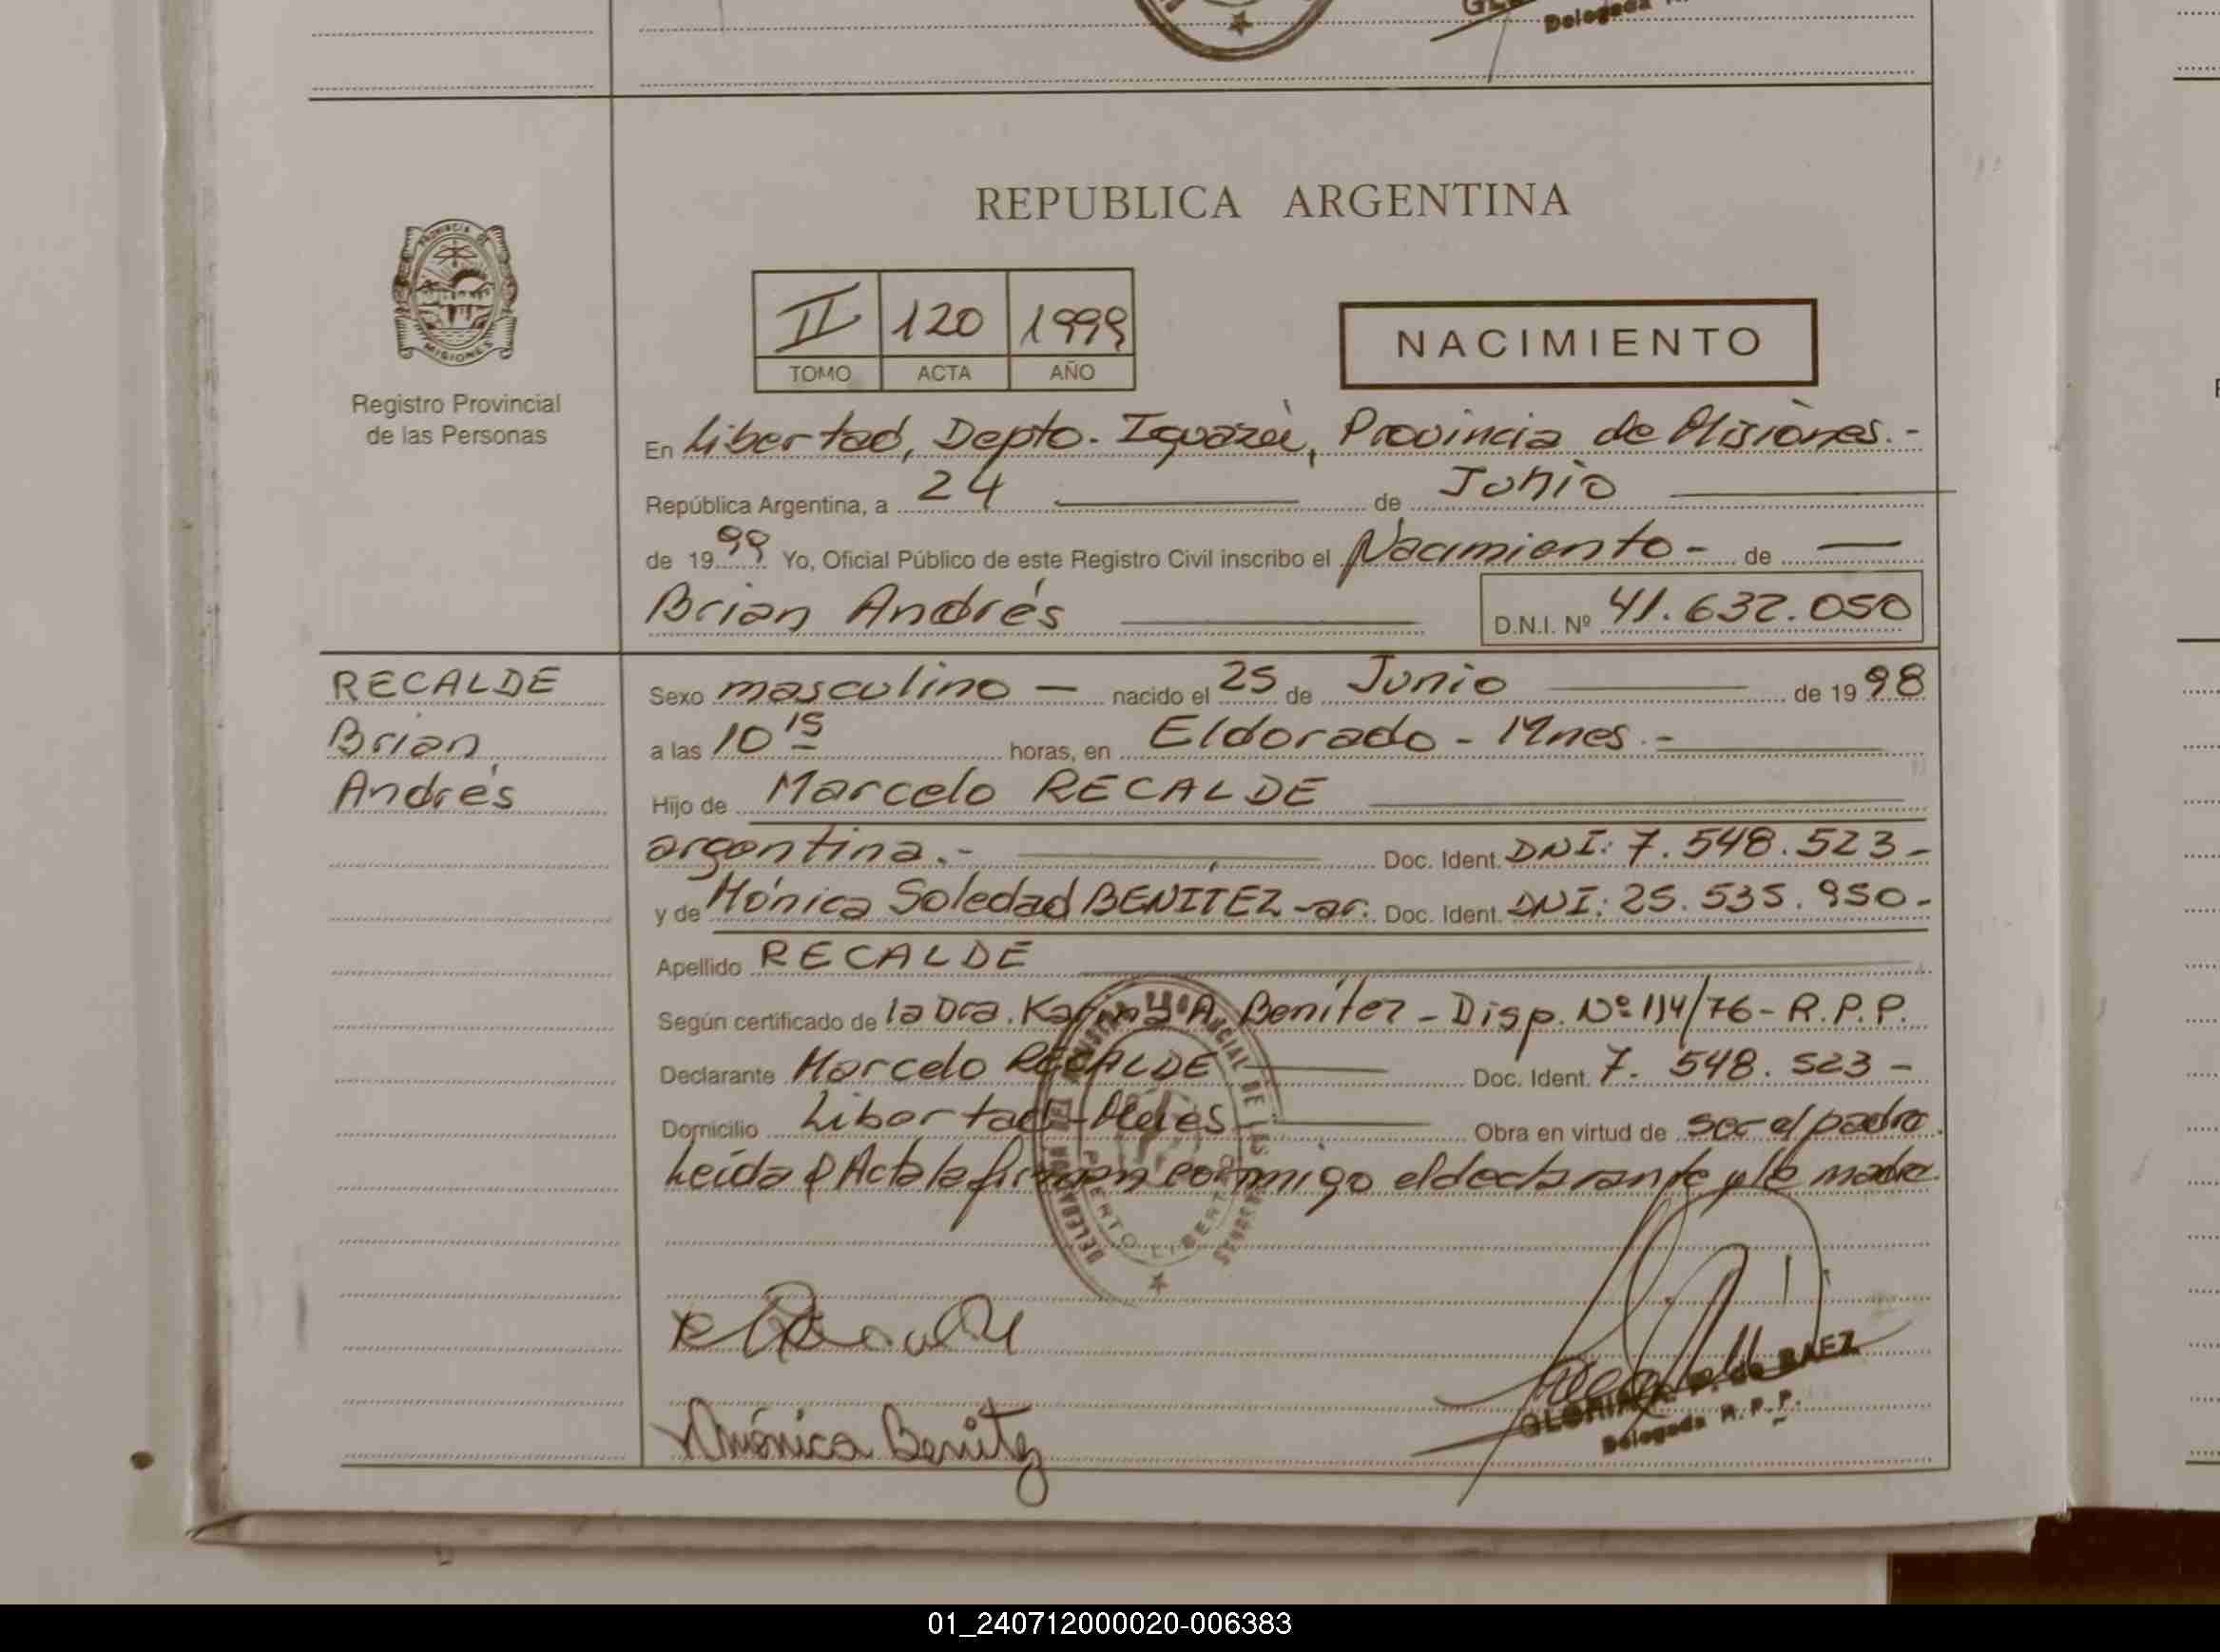 Delegada
REPUBLICA ARGENTINA
PROVINCIA DE
MISIONES
Registro Provincial
de las Personas
II 120 1999
TOMO ACTA AÑO
NACIMIENTO
En Libertad, Depto. Iguazú, Provincia de Misiones.-
República Argentina, a 24 de Junio
de 1999 Yo, Oficial Público de este Registro Civil inscribo el Nacimiento - de
Brian Andrés D.N.I. Nº 41.632.050
RECALDE
Brian
Andrés
Sexo masculino - nacido el 25 de Junio de 1998
a las 10 15 horas, en Eldorado - Mnes.-
Hijo de Marcelo RECALDE
argentina.- Doc. Ident. DNI: 7.548.523-
y de Mónica Soledad BENITEZ -ar. Doc. Ident. DNI: 25.535.950-
Apellido RECALDE
Según certificado de la Dra. A. Benítez - Disp. Nº 114/76 - R.P.P.
Declarante Marcelo RECALDE Doc. Ident. 7. 548. 523 -
Domicilio Libertad - Mnes Obra en virtud de ser el padre.
Leída el Acta la firman conmigo el declarante y la madre.
PUERTO LIBERTAD
Mónica Benitez
GLORIA P. de BAEZ
Delegada R.P.P.
01_240712000020-006383